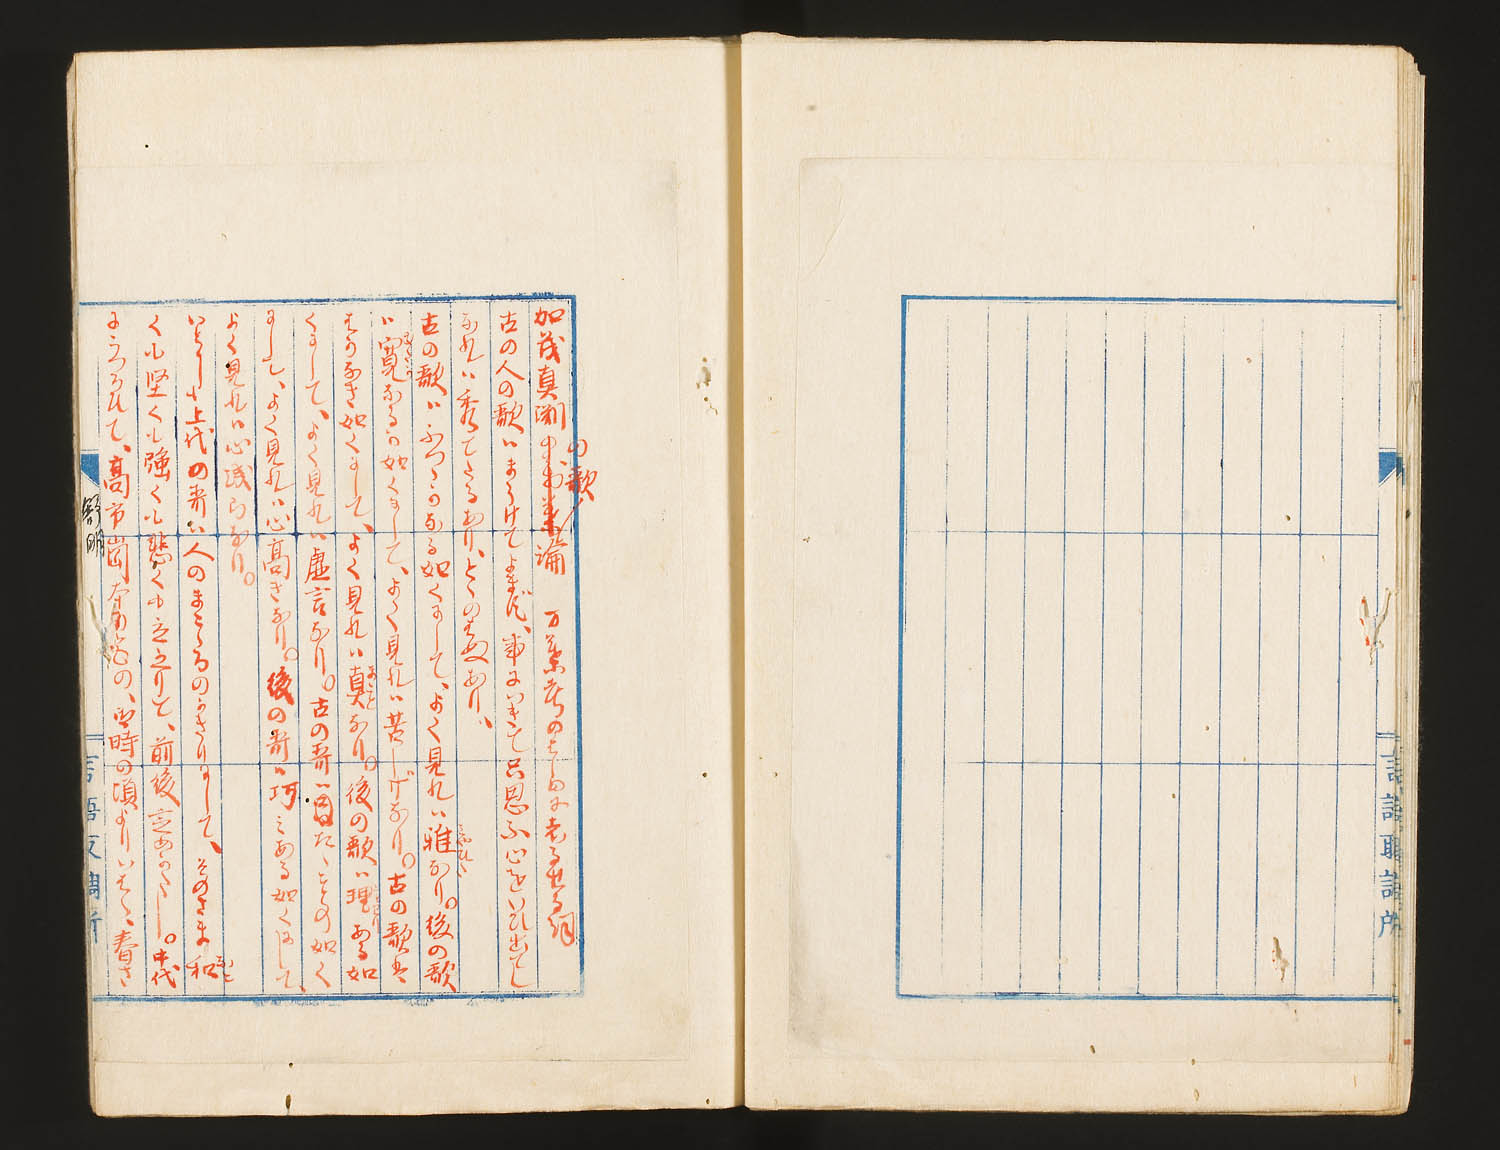 加茂真淵
の歌ノ論　万葉考のはしめに
古の人の歌ハまうけてよまず、事につきて思ふ心をいひ出てし
なれハ秀てたるあり、とゝのはぬあり、
古の歌ハふつゝかなる如くにして、よく見れハ雅なり。後の歌
ハ寛なるか如くにして、よく見れハ苦しげなり。古の歌は
はかなき如くにして、よく見れハ真なり。後の歌ハ理ある如
くにして、よく見れハ虚言なり。古の哥ハたゝことの如く
にして、よく見れハ心高きなり。後の哥ハ巧ミある如くにして、
よく見れハ心浅らなり。
上代の哥ハ人のまこゝろのかきりにして、そのさま和
くも堅くも強くも悲くも
前後
中代
にうつろひて、高市崗本宮の、御時の頃よりいはゝ、春さ
舒明
言語取調所
言語取調所